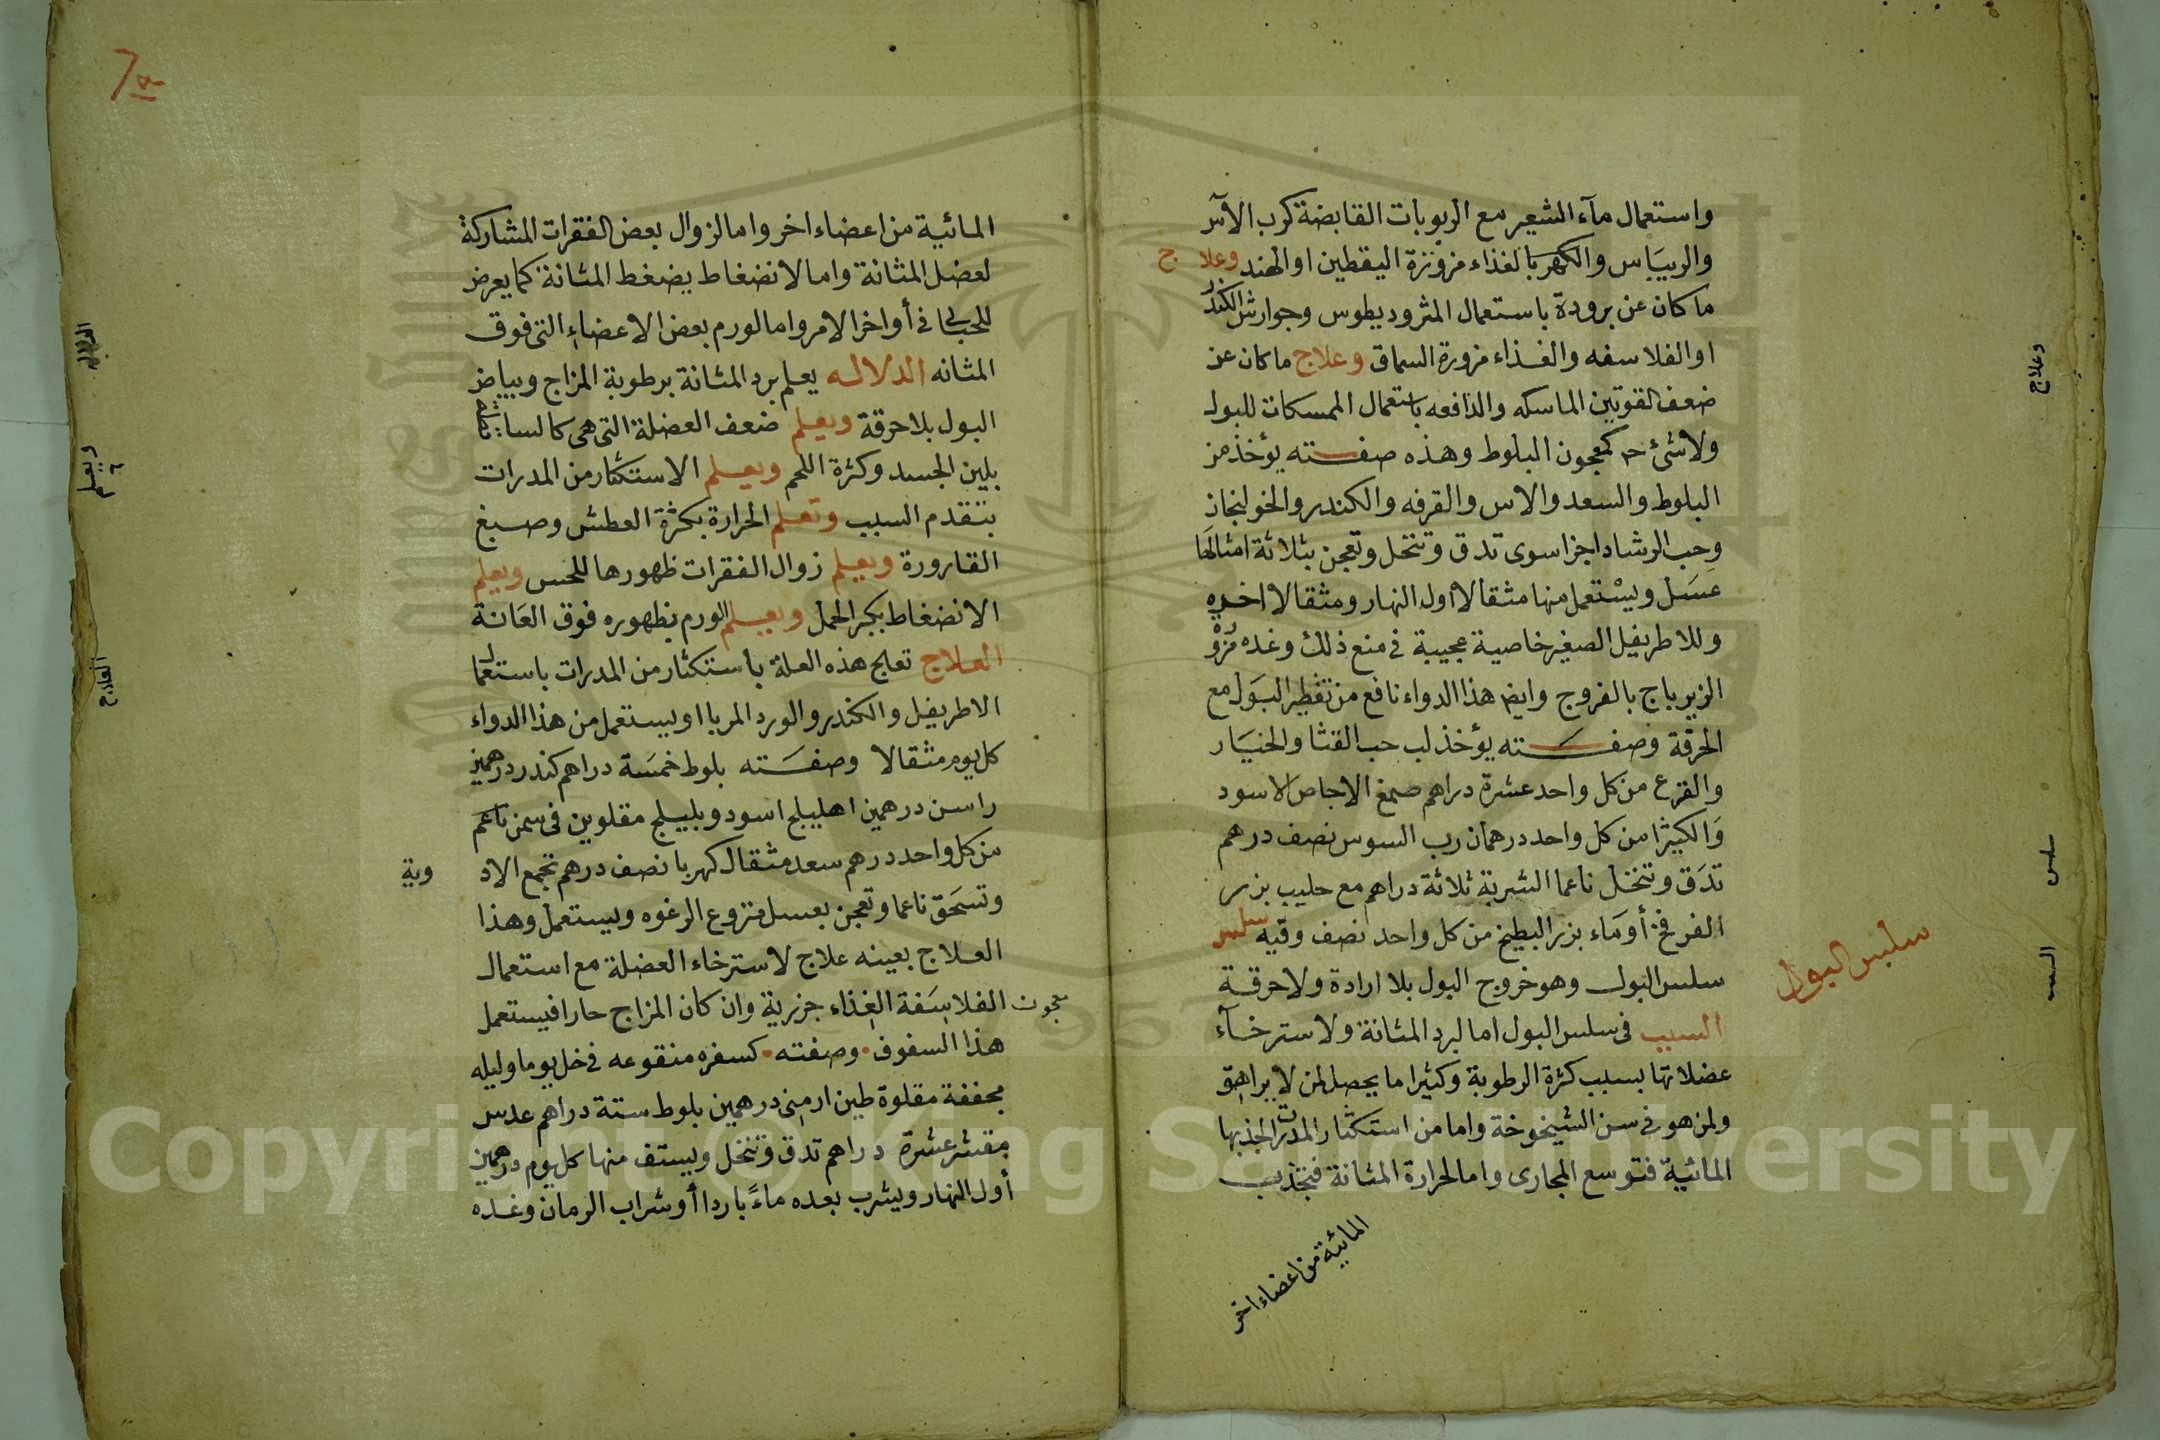 واستعمال مآء الشعير مع الربوبات القابضة كرب الآس
والريبَاس والكهربا لغذاء مزورة اليقطين او الهند وعلاج
ما كان عن برودة باستعمال المثروديطوس وجوارش الكندر
او الفلاسفه والغذاء مزورة السماق وعلاج ما كان عن
ضعف القوتين الماسكه والدافعه باستعمال الممسكات للبول
ولا شئ كمعجون البلوط وهذه صفته يؤخذ من
البلوط والسعد والاس والقرفه والكندر والخولنجان
وحب الرشاد اجزا سوى تدق وتنخل وتعجن بثلاثة امثالها
عسَل ويسْتعمل منها مثقالا اول النهار ومثقالا اخره
وللاطريفل الصغير خاصية عجيبة في منع ذلك وغده مزوْ
الزيرباج بالفروج وايض هذا الدواء نافع من تقطير البَول مع
الحرقة وصفته يؤخذ لب حب القثا والخيَار
والقرع من كل واحد عشرة دراهم صمغ الاجاص الاسود
وَالكيثرا من كل واحد درهمان رب السوس نصف درهم
تدَق وتنخل ناعما الشربة ثلاثة دراهم مع حليب بزر
الفرفخ أو مَاء بزر البطيخ من كل واحد نصف وقيه سلس
سلس البول وهو خروج البول بلا ارادة ولا حرقة
سلس البول
السبب في سلس البول اما لبرد المثانة ولاسترخآء
عضلاتها بسبب كثرة الرطوبة وكثيرا ما يحصل لمن لا يراهق
ولمن هو في سن الشيخوخة واما من استكثار المدرات لجذبها
المائية فتوسع المجارى واما لحرارة المثانة فتجذب
المائية من اعضاء اخر
وعلاج
سلس
السبب
المائية من اعضاء اخر واما لزوال بعض الفقرات المشاركة
لعضل المثانة واما لانضغاط يضغط المثانة كما يعرض
للحبالى في أواخر الامر واما لورم بعض الاعضاء التى فوق
المثانه الدلاله يعلم برد المثانة برطوبة المزاج وبياض
البول بلا حرقة ويعلم ضعف العضلة التى هى كالساد
بلين الجسد وكثرة اللحم ويعلم الاستكثار من المدرات
بتقدم السبب وتعلم الحرارة بكثرة العطش وصبغ
القارورة ويعلم زوال الفقرات ظهورها للحس ويعلم
الانضغاط بكبر الحمل ويعلم الورم بظهوره فوق العَانة
العلاج تعالج هذه العلة باستكثار من المدرات باستعمال
الاطريفل والكندر والورد المربا او يستعمل من هذا الدواء
كل يوم مثقالا وصفَته بلوط خمسَة دراهم كندر درهمين
راسن درهمين اهليلج اسود وبليلج مقلوين في سمن ناعم
من كل واحد درهم سعد مثقال كهربا نصف درهم تجمع الادوية
وتسَحق ناعما وتعجن بعسل منزوع الرغوه ويستعمل وهذا
العلاج بعينه علاج لاسترخاء العضلة مع استعمال
معجون الفلاسِفَة الغذاء جزرية وان كان المزاج حارا فيستعمل
هذا السفوف وصفته كسفره منقوعه في خل يوما وليله
مجففة مقلوة طين ارمنى درهمين بلوط ستة دراهم عدس
مقشر عشرة دراهم تدق وتنخل ويستف منها كل يوم درهمين
أول النهار ويشرب بعده ماءً باردا أو شراب الرمان وغده
الدلاله
ويعلم
العلاج